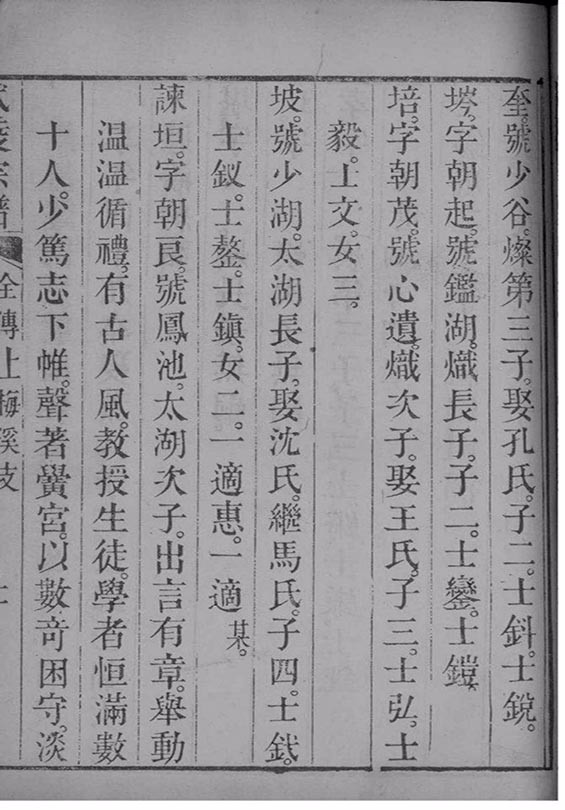 奎。號少谷。燦第三子。娶孔氏。子二。士鈄。士銳。
塝。字朝起。號鑑湖。熾長子。子二。士鑾。士鎧。
培。字朝茂。號心遺。熾次子。娶王氏。子三。士弘。士
毅。士文。女三。
坡。號少湖。太湖長子。娶沈氏。繼馬氏。子四。士鉽。
士釵。士鏊。士鎮。女二。一適惠。一適某。
諫垣。字朝良。號鳳池。太湖次子。出言有章。舉動
温温循禮。有古人風。教授生徒。學者恒滿數
十人。少篤志下帷。聲著黌宮。以數奇困守。淡
宗譜 全傳上梅溪支